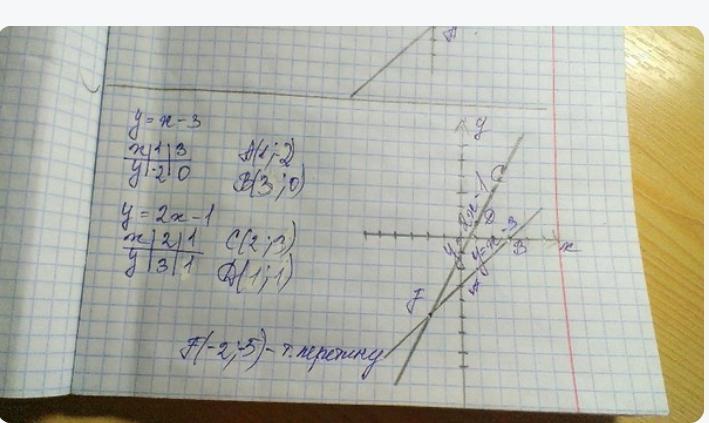 y = x - 3
x | 1 | 3
y | -2 | 0
A(1;-2)
B(3;0)
y = 2x - 1
x | 2 | 1
y | 3 | 1
C(2;3)
D(1;1)
F(-2;-5) - т. перетину
y
C
D
y = 2x - 1
y = x - 3
B
x
A
F